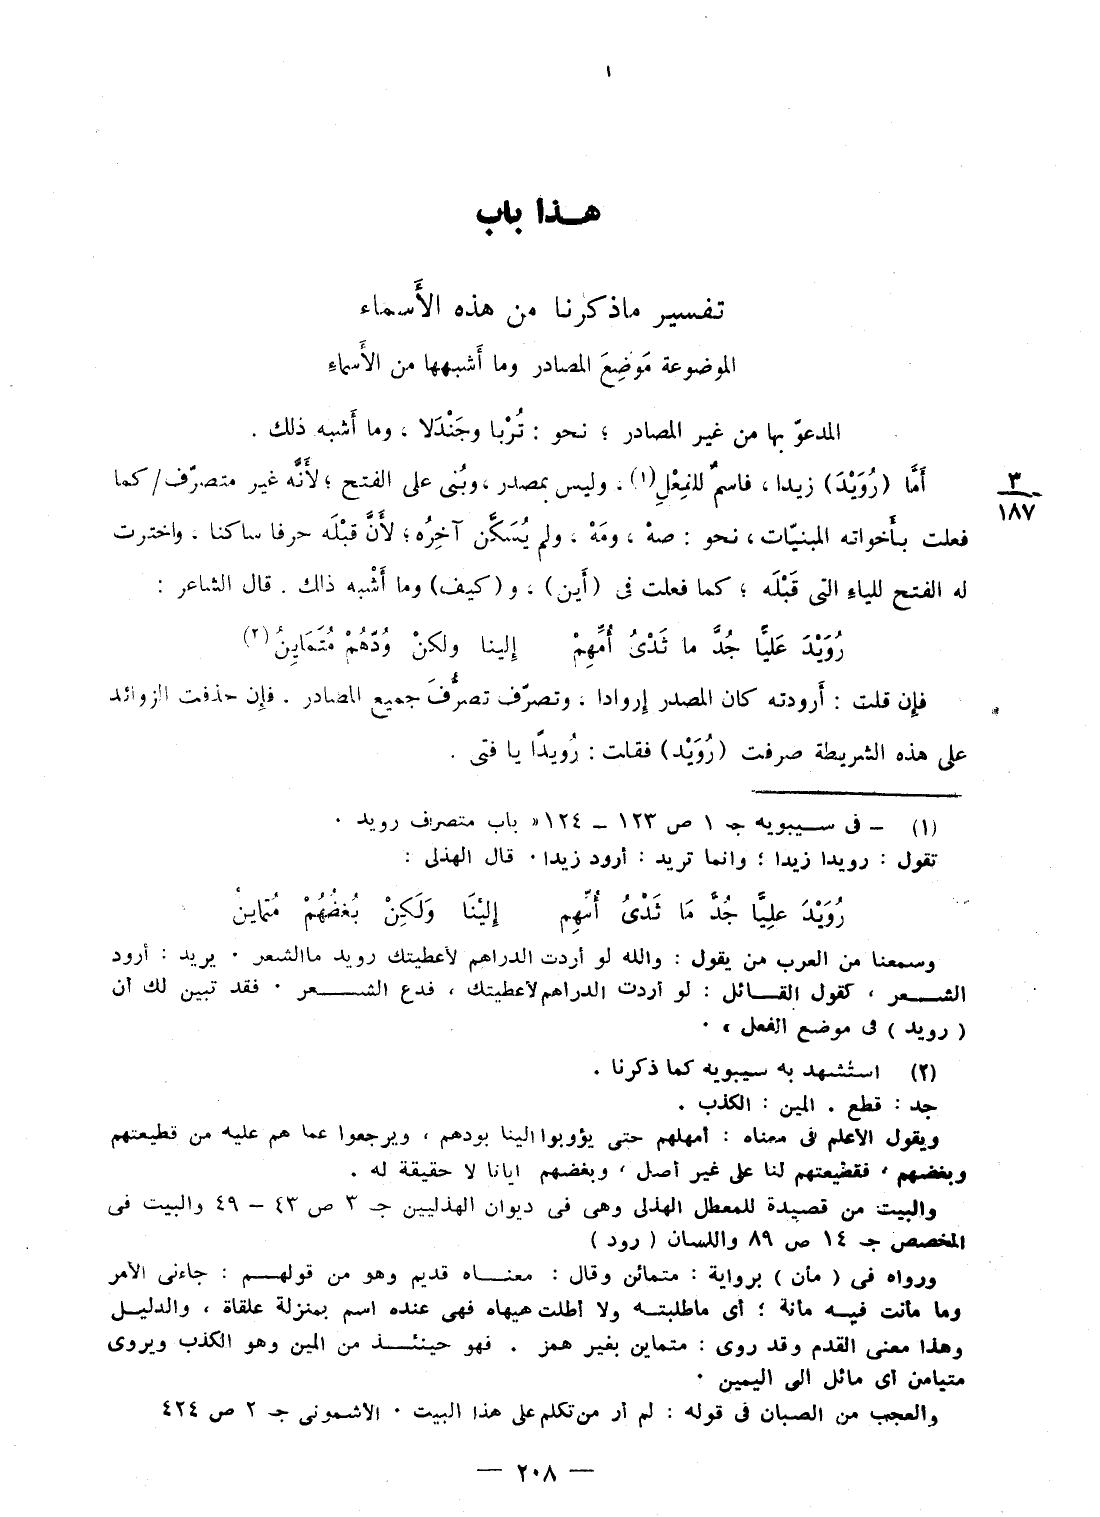 هـذا باب
تفسير ماذكرنا من هذه الأَسماء
الموضوعة مَوَضِعَ المصادر وما أَشبهها من الأَسماءِ
المدعوّ بها من غير المصادر ؛ نحو : تُرْبا وجَنْدَلا ، وما أَشبه ذلك .
أَمَّا (رُوَيْدَ) زيدا ، فاسمٌ للفِعْلِ(١) ، وليس بمصدر ، وبُنى على الفتح ؛ لأَنَّه غير متصرّف/ كما
٣
١٨٧
فعلت بأَخواته المبنيّات ، نحو : صهْ ، ومَهْ ، ولم يُسَكَّن آخِرُه ؛ لأَنَّ قبْلَه حرفا ساكنا ، واخترت
له الفتح للياءِ التى قَبْلَه ؛ كما فعلت فى (أَين) ، و(كيف) وما أَشْبه ذاك . قال الشاعر :
رُوَيْدَ عَليًّا جُدَّ ما ثَدْىُ أُمِّهِمْ إلينا ولكنْ وُدّهُمْ مُتَمَايِنُ(٢)
فإِن قلت : أَرودته كان المصدر إِروادا ، وتصرّف تصرُّفَ جميع المصادر . فإِن حذفت الزوائد
على هذه الشريطة صرفت (رُوَيْد) فقلت : رُويدًا يا فتى .
(١) ـ فى سـيبويه جـ ١ ص ١٢٣ ـ ١٢٤ « باب متصرف رويد .
تقول : رويدا زيدا ؛ وانما تريد : أرود زيدا . قال الهذلى :
رُوَيْدَ عليًّا جُدَّ مَا ثَدْىُ أُمِّهِم إِليْنَا وَلَكِنْ بُغضُهُمْ مُتماينُ
وسمعنا من العرب من يقول : والله لو أردت الدراهم لأعطيتك رويد ماالشعر . يريد : أرود
الشـعر ، كقول القـائل : لو أردت الدراهم لأعطيتك ، فدع الشـعر . فقد تبين لك أن
( رويد ) فى موضع الفعل » .
(٢) استُشهد به سيبويه كما ذكرنا .
جد : قطع . المين : الكذب .
ويقول الأعلم فى معناه : أمهلهم حتى يؤوبوا الينا بودهم ، ويرجعوا عما هم عليه من قطيعتهم
وبغضهم ، فقطيعتهم لنا على غير أصل ، وبغضهم ايانا لا حقيقة له .
والبيت من قصيدة للمعطل الهذلى وهى فى ديوان الهذليين جـ ٣ ص ٤٣ ـ ٤٩ والبيت فى
المخصص جـ ١٤ ص ٨٩ واللسان ( رود )
ورواه فى ( مأن ) برواية : متمائن وقال : معنـاه قديم وهو من قولهـم : جاءنى الأمر
وما مأنت فيـه مأنة ؛ أى ماطلبتـه ولا أطلت هيهاه فهى عنده اسم بمنزلة علقاة ، والدليـل
وهذا معنى القدم وقد روى : متماين بغير همز . فهو حينئـذ من المين وهو الكذب ويروى
متيامن أى مائل الى اليمين .
والعجب من الصبان فى قوله : لم أر من تكلم على هذا البيت . الأشمونى جـ ٢ ص ٤٢٤
— ٢٠٨ —